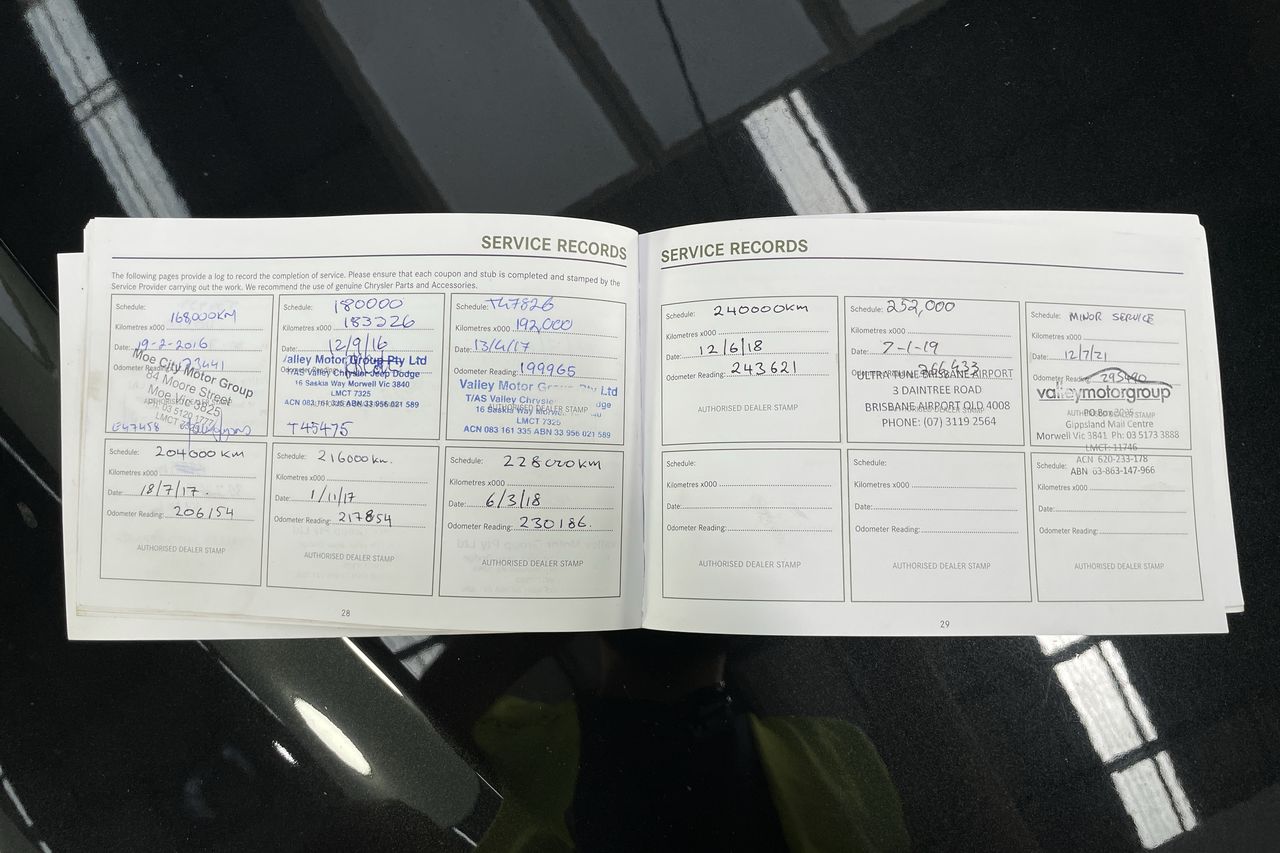 SERVICE RECORDS
The following pages provide a log to record the completion of service. Please ensure that each coupon and stub is completed and stamped by the
Service Provider carrying out the work. We recommend the use of genuine Chrysler Parts and Accessories.
Schedule:
168,000KM
Kilometres x000
Date: 19-2-2016
Odometer Reading:
Moe City Motor Group
84 Moore Street
Moe Vic 3825
PH 03 5120 1777
LMCT
E47458
Schedule: 180000
Kilometres x000 183226
Date: 12/9/16
Valley Motor Group Pty Ltd
T/AS Valley Chrysler Jeep Dodge
16 Saskia Way Morwell Vic 3840
LMCT 7325
ACN 083 161 335 ABN 33 956 021 589
T45475
Schedule: T47826
Kilometres x000 192,000
Date: 13/4/17
Odometer Reading: 199965
Valley Motor Group Pty Ltd
T/AS Valley Chrysler
AUTHORISED DEALER STAMP
16 Saskia Way
LMCT 7325
ACN 083 161 335 ABN 33 956 021 589
Schedule: 204000 KM
Kilometres x000
Date: 18/7/17.
Odometer Reading: 206154
AUTHORISED DEALER STAMP
Schedule: 216000 km.
Kilometres x000
Date: 1/11/17
Odometer Reading: 217854
AUTHORISED DEALER STAMP
Schedule: 228000 KM
Kilometres x000
Date: 6/3/18
Odometer Reading: 230186.
AUTHORISED DEALER STAMP
28
SERVICE RECORDS
Schedule: 240000km
Kilometres x000
Date: 12/6/18
Odometer Reading: 243621
AUTHORISED DEALER STAMP
Schedule: 252,000
Kilometres x000
Date: 7-1-19
ULTRA TUNE BRISBANE AIRPORT
3 DAINTREE ROAD
BRISBANE AIRPORT QLD 4008
PHONE: (07) 3119 2564
Schedule: MINOR SERVICE
Kilometres x000
Date: 12/7/21
Odometer Reading:
valleymotorgroup
AUTHORISED DEALER STAMP
Gippsland Mail Centre
Morwell Vic 3841 Ph: 03 5173 3888
LMCT: 11746
ACN 620-233-178
ABN 63-863-147-966
Schedule:
Kilometres x000
Date:
Odometer Reading:
AUTHORISED DEALER STAMP
Schedule:
Kilometres x000
Date:
Odometer Reading:
AUTHORISED DEALER STAMP
Schedule:
Kilometres x000
Date:
Odometer Reading:
AUTHORISED DEALER STAMP
29